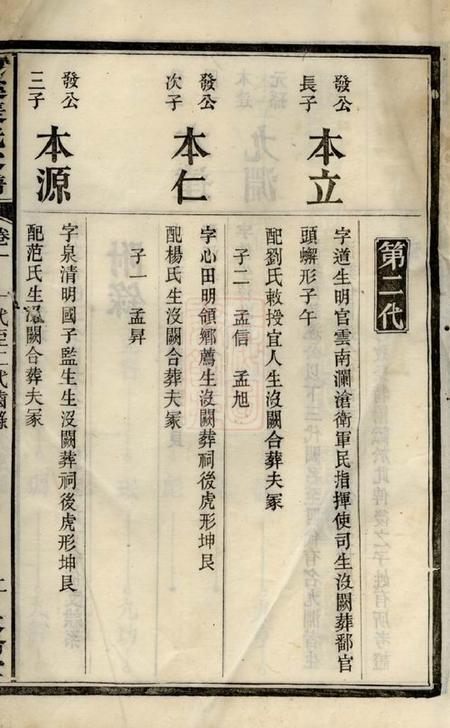 第二代
發公
長子
本立
字道生明官雲南瀾滄衛軍民指揮使司生沒闕葬鄱官
頭獬形子午
配劉氏敕授宜人生沒闕合葬夫冢
子二 孟信 孟旭
發公
次子
本仁
字心田明領鄉薦生沒闕葬祠後虎形坤艮
配楊氏生沒闕合葬夫冢
子一 孟昇
發公
三子
本源
字泉清明國子監生生沒闕葬祠後虎形坤艮
配范氏生沒闕合葬夫冢